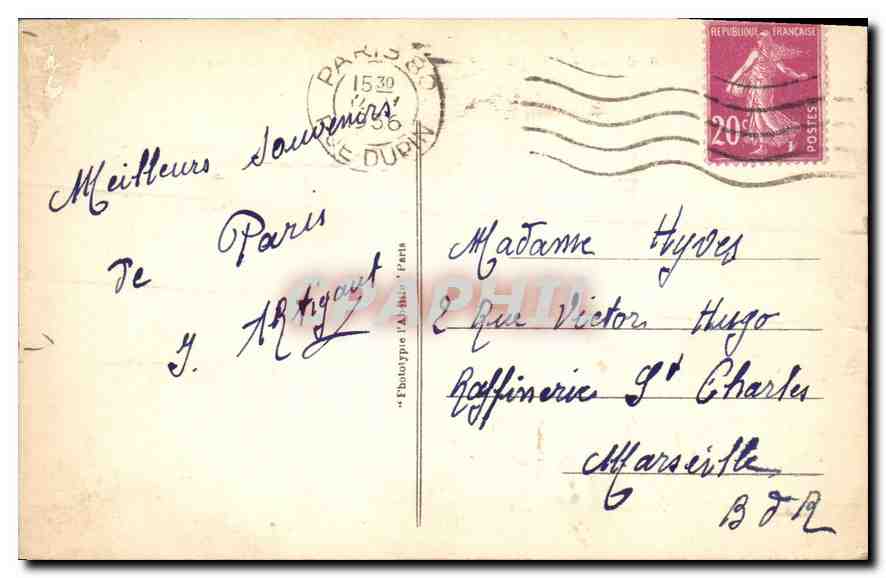 PARIS 80
15 30
1936
RUE DUPIN
REPUBLIQUE FRANÇAISE
20c
POSTES
Meilleurs souvenirs
de Paris
J. Artigaut
"Phototypie l'Abeille" Paris
CPAPHIL
Madame Hyves
2 Rue Victor Hugo
Raffinerie St Charles
Marseille
B d R